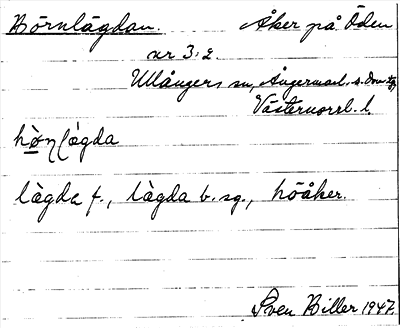 Börnlägdan. Åker på Öden
nr 3:2.
Ullångers sn, Ångermanl. s. domsaga
Västernorrl. l.
lägda f., lägda b. sg., höåker.
Sven Biller 1947.